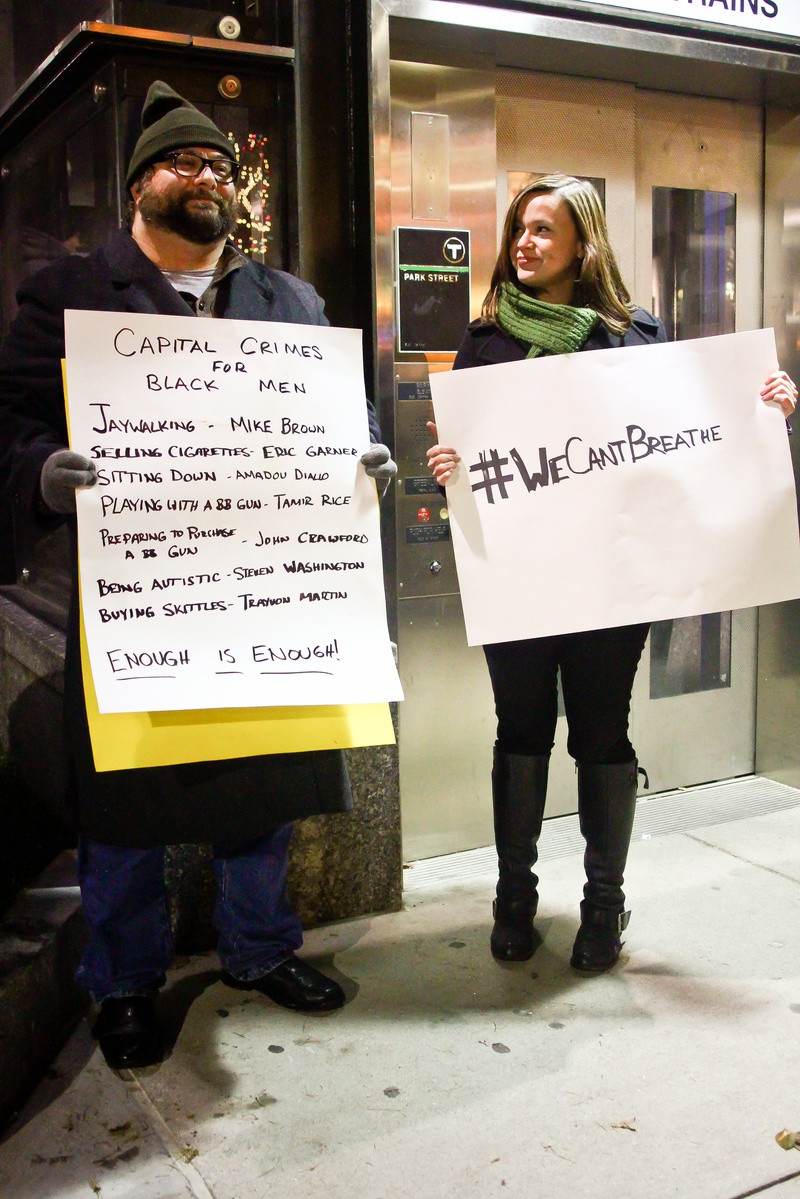 TRAINS
T
PARK STREET
CAPITAL CRIMES
FOR
BLACK MEN
JAYWALKING - MIKE BROWN
SELLING CIGARETTES - ERIC GARNER
SITTING DOWN - AMADOU DIALLO
PLAYING WITH A BB GUN - TAMIR RICE
PREPARING TO PURCHASE - JOHN CRAWFORD
A BB GUN
BEING AUTISTIC - STEVEN WASHINGTON
BUYING SKITTLES - TRAYVON MARTIN
ENOUGH IS ENOUGH!
#WECANTBREATHE